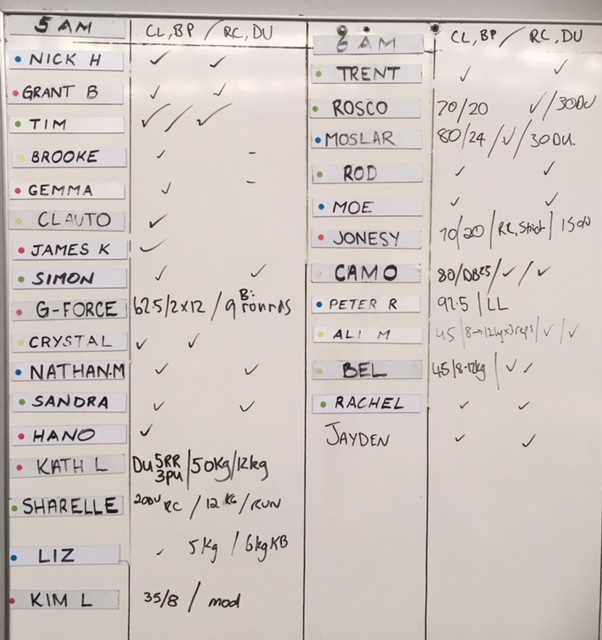 5 AM CL, BP / RC, DU
NICK H ✓ ✓
GRANT B ✓ ✓
TIM ✓ / ✓
BROOKE ✓ -
GEMMA ✓ -
CLAUTO ✓
JAMES K ✓
SIMON ✓ ✓
G-FORCE 62.5/2x12 / 9 B:
CRYSTAL ✓ ✓
NATHAN.M ✓ ✓
SANDRA ✓ ✓
HANO ✓
KATH L DU 5RR 3PU / 50kg/12kg
SHARELLE 20DU RC / 12 KG / RUN
LIZ ✓ 5kg / 6kg KB
KIM L 35/8 / mod
6 AM CL, BP / RC, DU
TRENT ✓ ✓
ROSCO 70/20 ✓/30DU
MOSLAR 80/24 / ✓ / 30DU.
ROD ✓ ✓
MOE ✓ ✓
JONESY 70/20 / RR, Strict / 15DU
CAMO 80/DB25 / ✓ / ✓
PETER R 92.5 | LL
ALI M 45 / 8→12kgx3reps / ✓ / ✓
BEL 45/8-12kg / ✓ ✓
RACHEL ✓ ✓
JAYDEN ✓ ✓